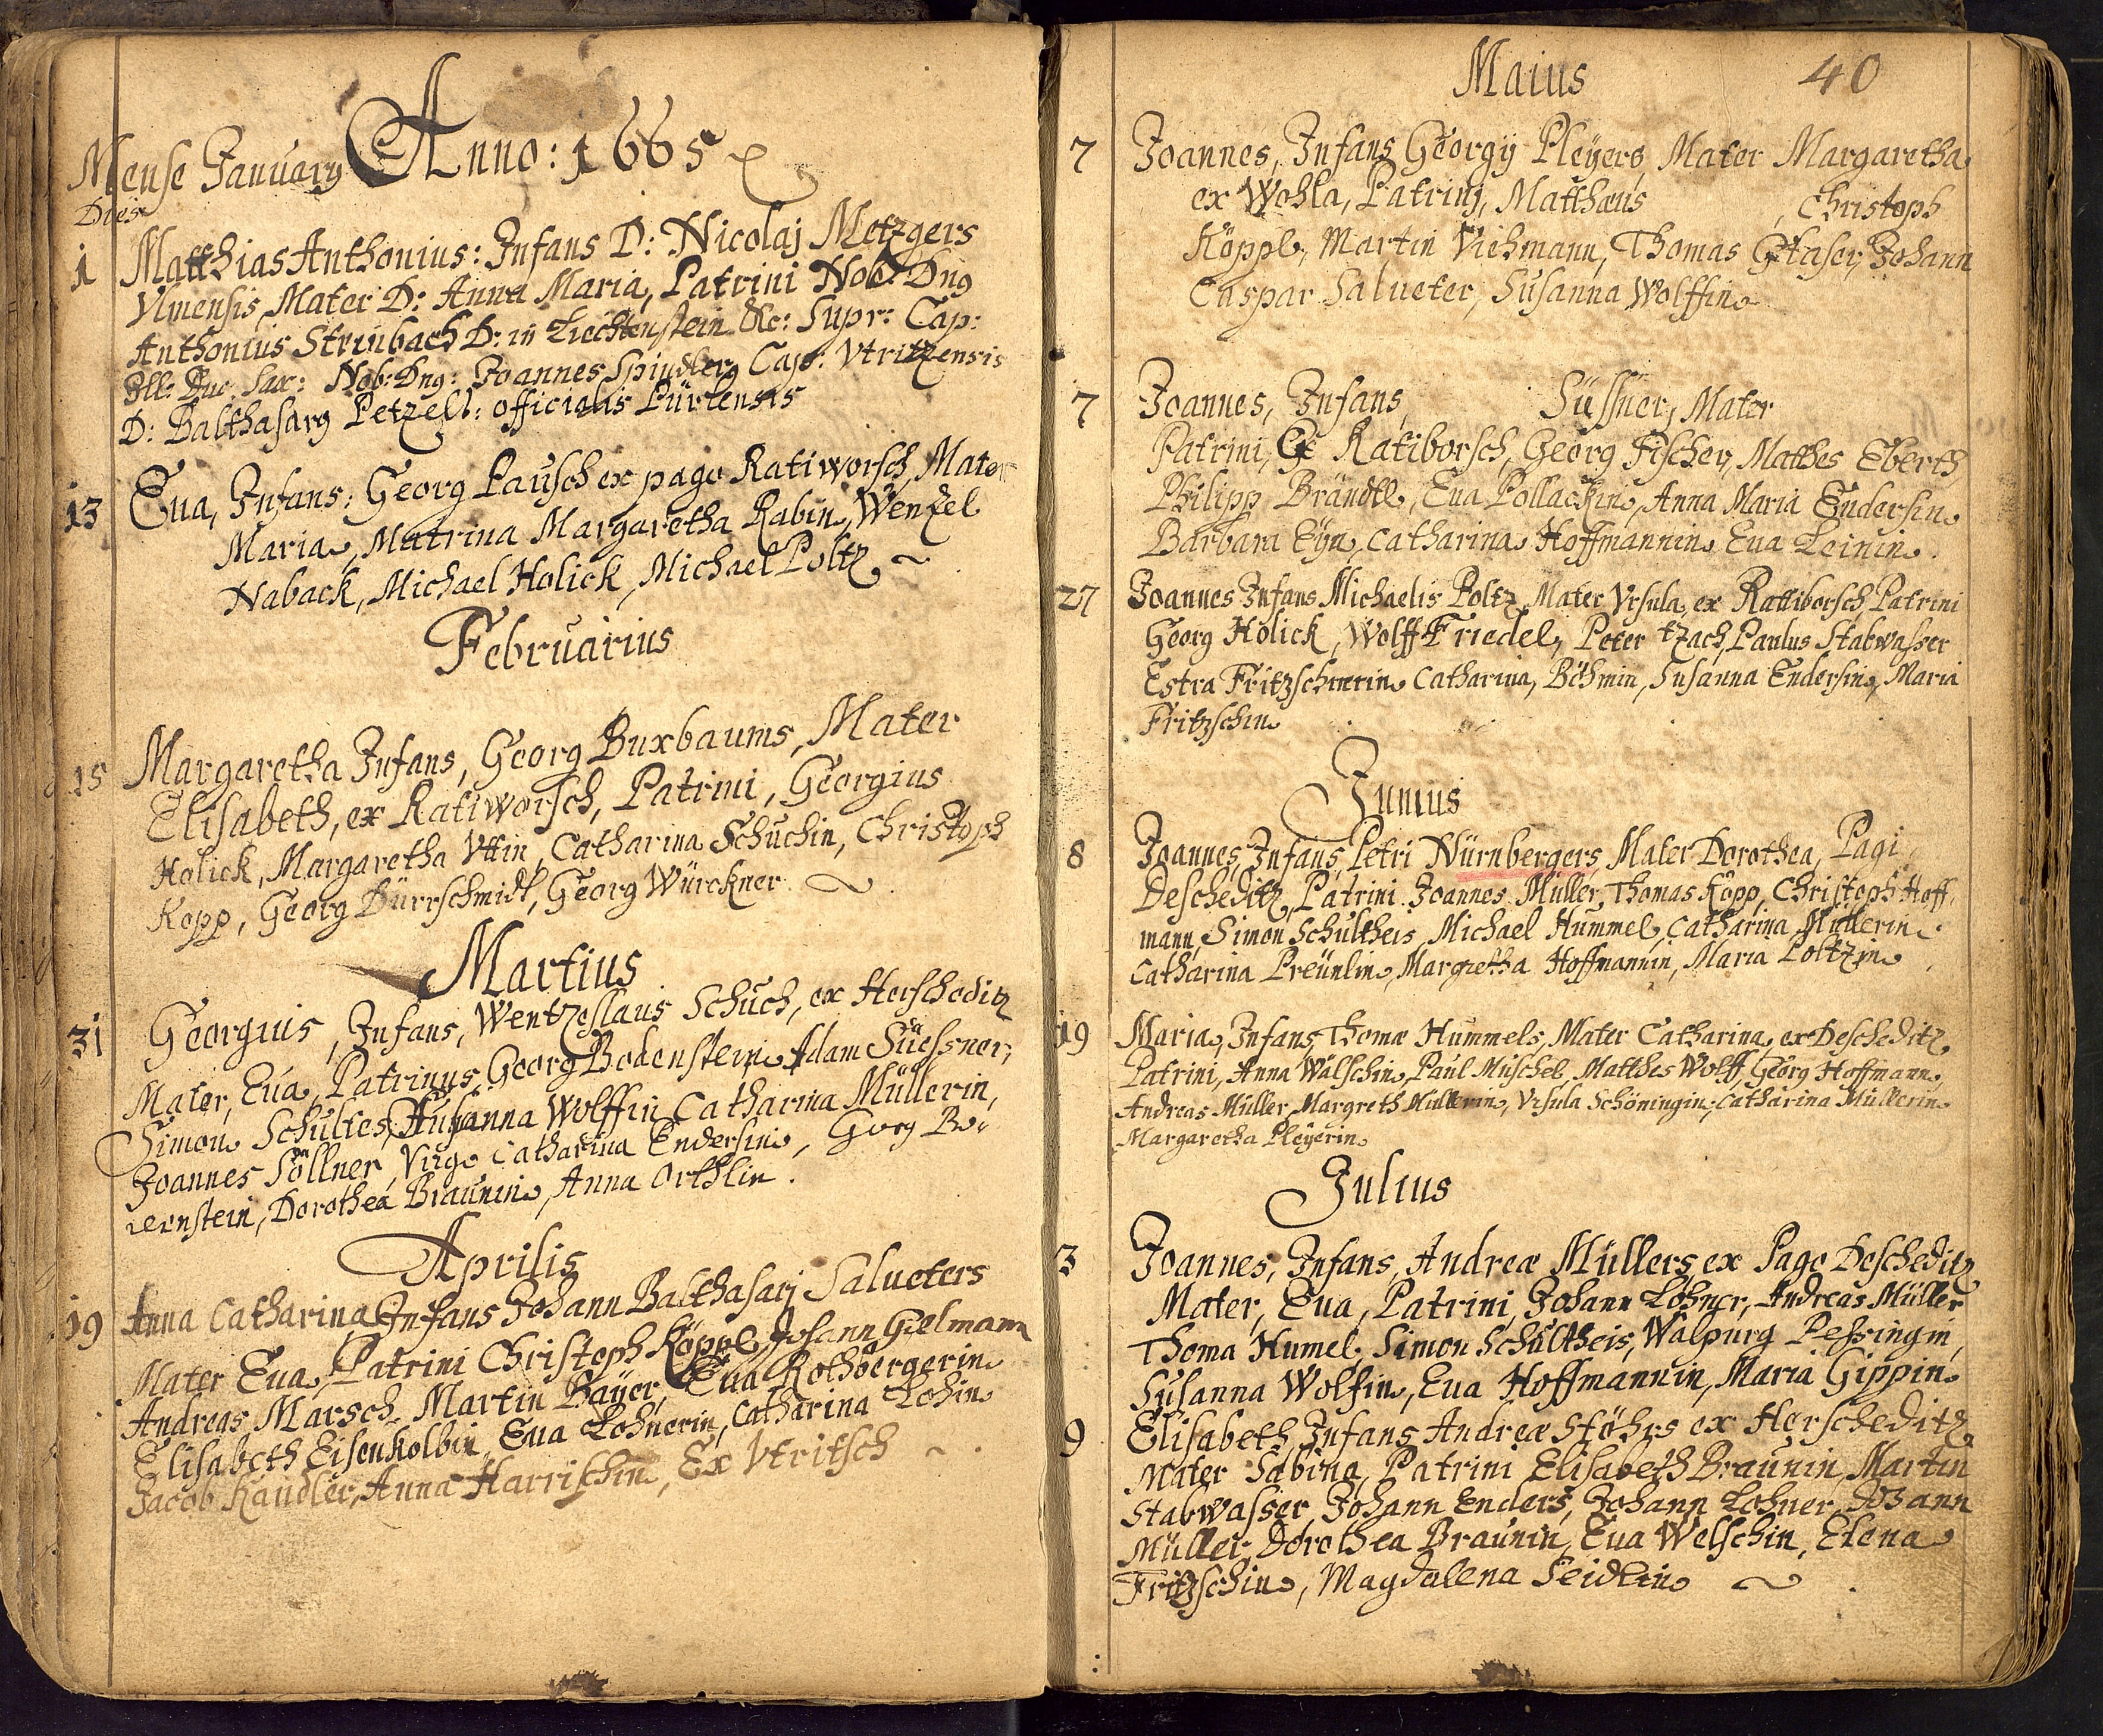 Anno: 1665
Mense January
Dies
1 Matthias Anthonius: Infans D: Nicolaj Metzgers
Vlmensis, Mater D: Anna Maria, Patrini Nob: Dng
Anthonius Strinbach D: in Liechtenstein &c: Supr: Cap:
Ill: Duc: Sax: Nob: Dng: Joannes Spindler, Cap: Vtritzensis
D: Balthasarg Petzelt: officialis Pürlensis
13 Eua, Infans: Georg Pausch ex pago Ratiworsch, Mater
Maria, Matrina Margaretha Rabin, Wenzel
Naback, Michael Holick, Michael Poltz ~
Februarius
15 Margaretha Infans, Georg Buxbaums, Mater
Elisabeth, ex Ratiworsch, Patrini, Georgius
Holick, Margaretha Vttin, Catharina Schuchin, Christoph
Kopp, Georg Dürrschmidt, Georg Würckner ~
Martius
31 Georgius, Infans, Wentzeslaus Schuch, ex Herscheditz
Mater, Eua, Patrinus, Georg Bodenstein, Adam Süessner,
Simon Schultes, Susanna Wolffin Catharina Müllerin,
Joannes Söllner, Virgo Catharina Endersin, Georg Be-
rernstein, Dorothea Braunin, Anna Orthlin.
Aprilis
19 Anna Catharina Infans Johann Balthasarj Salueters
Mater Eua, Patrini Christoph Köppl, Johann Gielmann
Andreas Marsch, Martin Bayer, Eua Rothbergerin
Elisabeth Eisenkolbin, Eua Lohnerin, Catharina Lohin
Jacob Kandler, Anna Harrischin, Ex Vtritsch ~
Maius 40
7 Joannes, Infans Georgij Pleyers, Mater Margaretha
ex Wohla, Patrinj, Matthæus , Christoph
Köppl, Martin Viehmann, Thomas Glaser, Johann
Caspar Salueter, Susanna Wolffin
7 Joannes, Infans, Süssner, Mater
Patrini, Ex Ratiborsch, Georg Fischer, Mathes Eberth,
Philipp Brändtl, Eua Pollackin, Anna Maria Endersin
Barbara Eyn, Catharina Hoffmannin Eua Leinin.
27 Joannes Infans Michaelis Poltz, Mater Vrsula, ex Rattiborsch, Patrini
Georg Holick, Wolff Friedel, Peter tzach, Paulus Stabwasser
Estra Fritzschinrin Catharina, Böhmin, Susanna Endersin, Maria
Fritzschin
Junius
8 Joannes, Infans, Petri Nürnbergers, Mater Dorothea, Pagi
Descheditz, Patrini Joannes Müller, Thomas Kopp, Christoph Hoff,
mann, Simon Schultheis, Michael Hummel, Catharina Müllerin
Catharina Preünlin, Margretha Hoffmannin, Maria Poltzin
19 Maria, Infans Thomæ Hummels, Mater Catharina, ex Descheditz
Patrini, Anna Walschin, Paul Müschel, Matthes Wolff, Georg Hoffmann,
Andreas Müller, Margreth Müllerin, Vrsula Schöningin, Catharina Müllerin
Margaretha Pleyerin
Julius
3 Joannes, Infans, Andreæ Müllers, ex Pago Descheditz
Mater, Eua, Patrini, Johann Lohner, Andreas Müller
Thoma Humel, Simon Schultheis, Walpurg Pessingin,
Susanna Wolfin, Eua Hoffmannin, Maria Gippin
9 Elisabeth, Infans Andreæ Stöhrs ex Herscheditz
Mater Sabina, Patrini Elisabeth Braunin, Martin
Stabwasser, Johann Enders, Johann Lohner, Johann
Müller, Dorothea Braunin, Eua Welschin, Elena
Fritzschin, Magdalena Seidlin ~